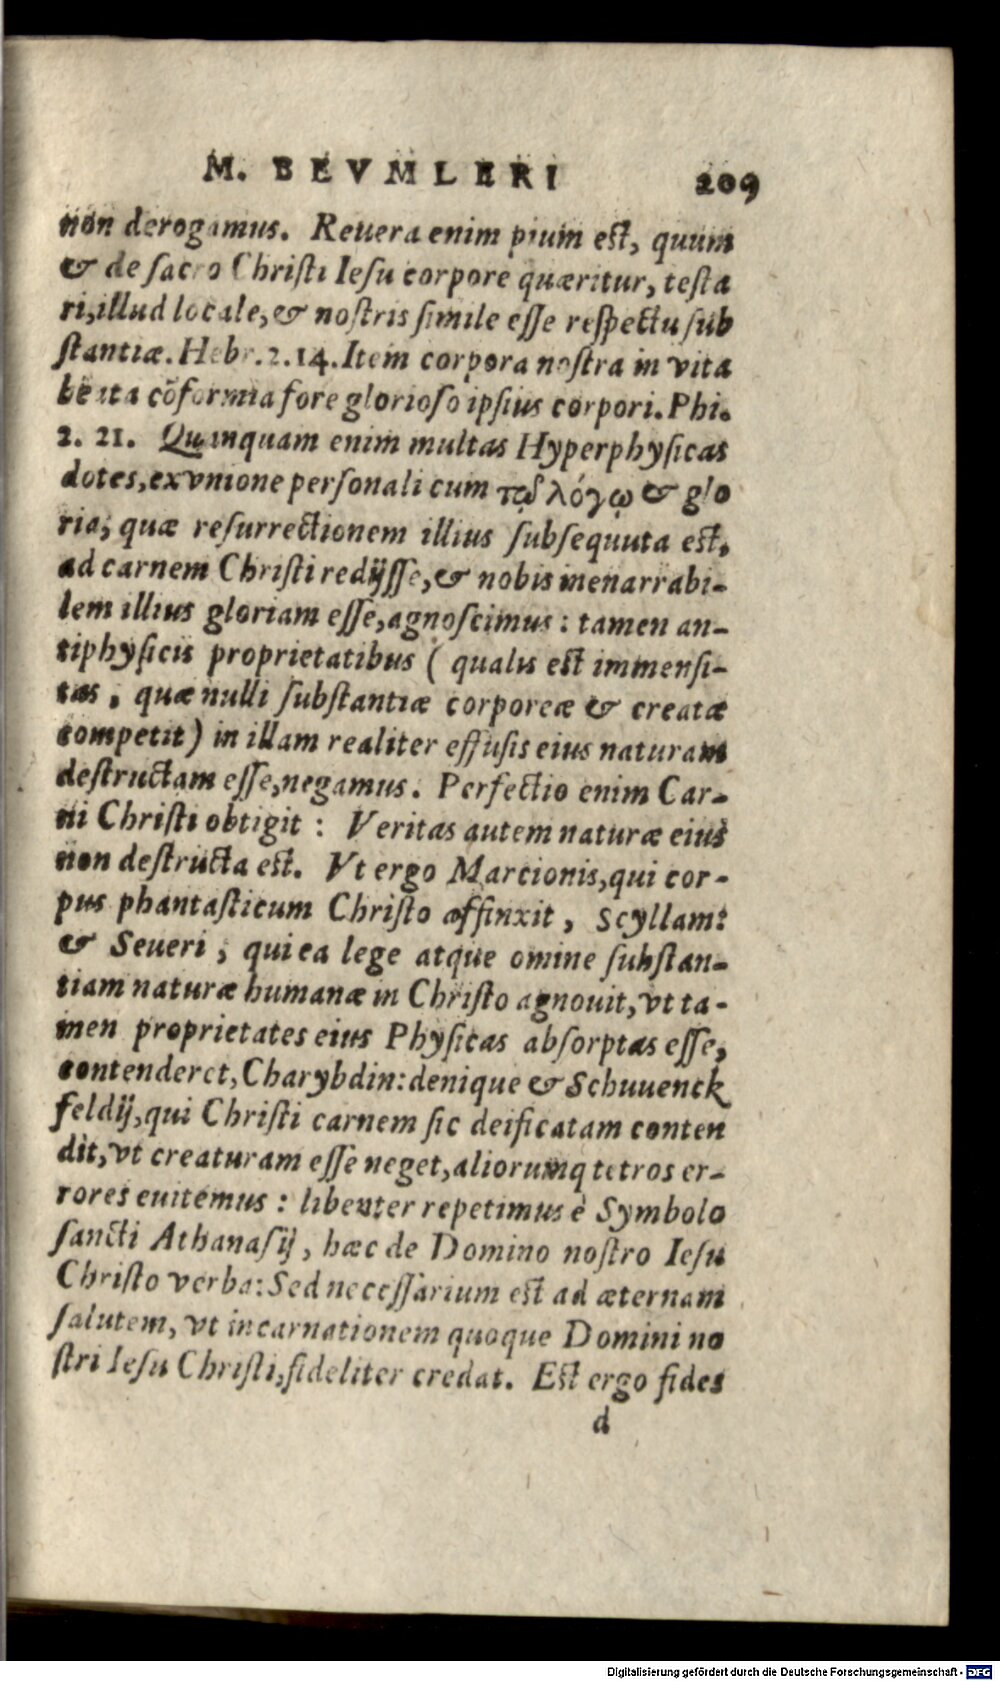 M. BEVMLERI 209
non derogamus. Reuera enim pium est, quum
& de sacro Christi Iesu corpore quæritur, testa
ri, illud locale, & nostris simile esse respectu sub
stantiæ. Hebr. 2. 14. Item corpora nostra in vita
beata cōformia fore glorioso ipsius corpori. Phi.
2. 21. Quanquam enim multas Hyperphysicas
dotes, ex vnione personali cum τῷ λόγῳ & glo
ria, quæ resurrectionem illius subsequuta est,
ad carnem Christi redijsse, & nobis inenarrabi-
lem illius gloriam esse, agnoscimus: tamen an-
tiphysicis proprietatibus (qualis est immensi-
tas, quæ nulli substantiæ corporeæ & creatæ
competit) in illam realiter effusis eius naturam
destructam esse, negamus. Perfectio enim Car-
ni Christi obtigit: Veritas autem naturæ eius
non destructa est. Vt ergo Marcionis, qui cor-
pus phantasticum Christo affinxit, Scyllam:
& Seueri, qui ea lege atque omine substan-
tiam naturæ humanæ in Christo agnouit, vt ta-
men proprietates eius Physicas absorptas esse,
contenderet, Charybdin: denique & Schuuenck
feldij, qui Christi carnem sic deificatam conten
dit, vt creaturam esse neget, aliorumq tetros er-
rores euitemus: libenter repetimus è Symbolo
sancti Athanasij, hæc de Domino nostro Iesu
Christo verba: Sed necessarium est ad æternam
salutem, vt incarnationem quoque Domini no
stri Iesu Christi, fideliter credat. Est ergo fides
d
Digitalisierung gefördert durch die Deutsche Forschungsgemeinschaft - DFG